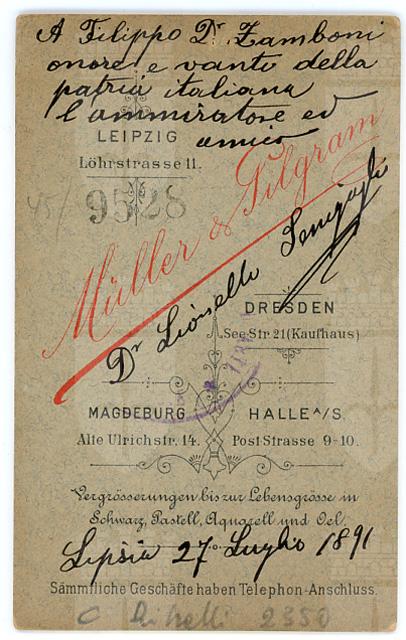 A Filippo Dr. Zamboni
onore e vanto della
patria italiana
l'ammiratore ed
amico
LEIPZIG
Löhrstrasse 11.
45/
9528
Müller & Pilgram
Dr Lionello
DRESDEN
See-Str. 21 (Kaufhaus)
MAGDEBURG
Alte Ulrichstr. 14.
HALLE A/S.
Post-Strasse 9-10.
Vergrösserungen bis zur Lebensgrösse in
Schwarz, Pastell, Aquarell und Oel.
Lipsia 27 Luglio 1891
Sämmtliche Geschäfte haben Telephon-Anschluss.
2350